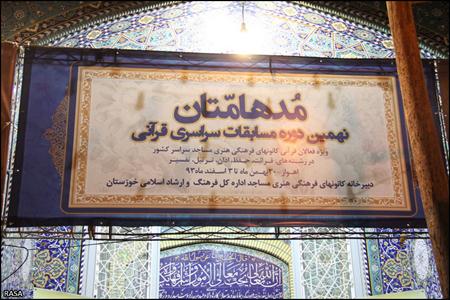 مُدهامّتان
نهمین دوره مسابقات سراسری قرآنی
ویژه فعالان قرآنی کانونهای فرهنگی هنری مساجد سراسر کشور
در رشته‌های: قرائت، حفظ، اذان، ترتیل، تفسیر
اهواز - ۳۰ بهمن ماه تا ۳ اسفند ماه ۹۳
دبیرخانه کانونهای فرهنگی هنری مساجد اداره کل فرهنگ و ارشاد اسلامی خوزستان
RASA